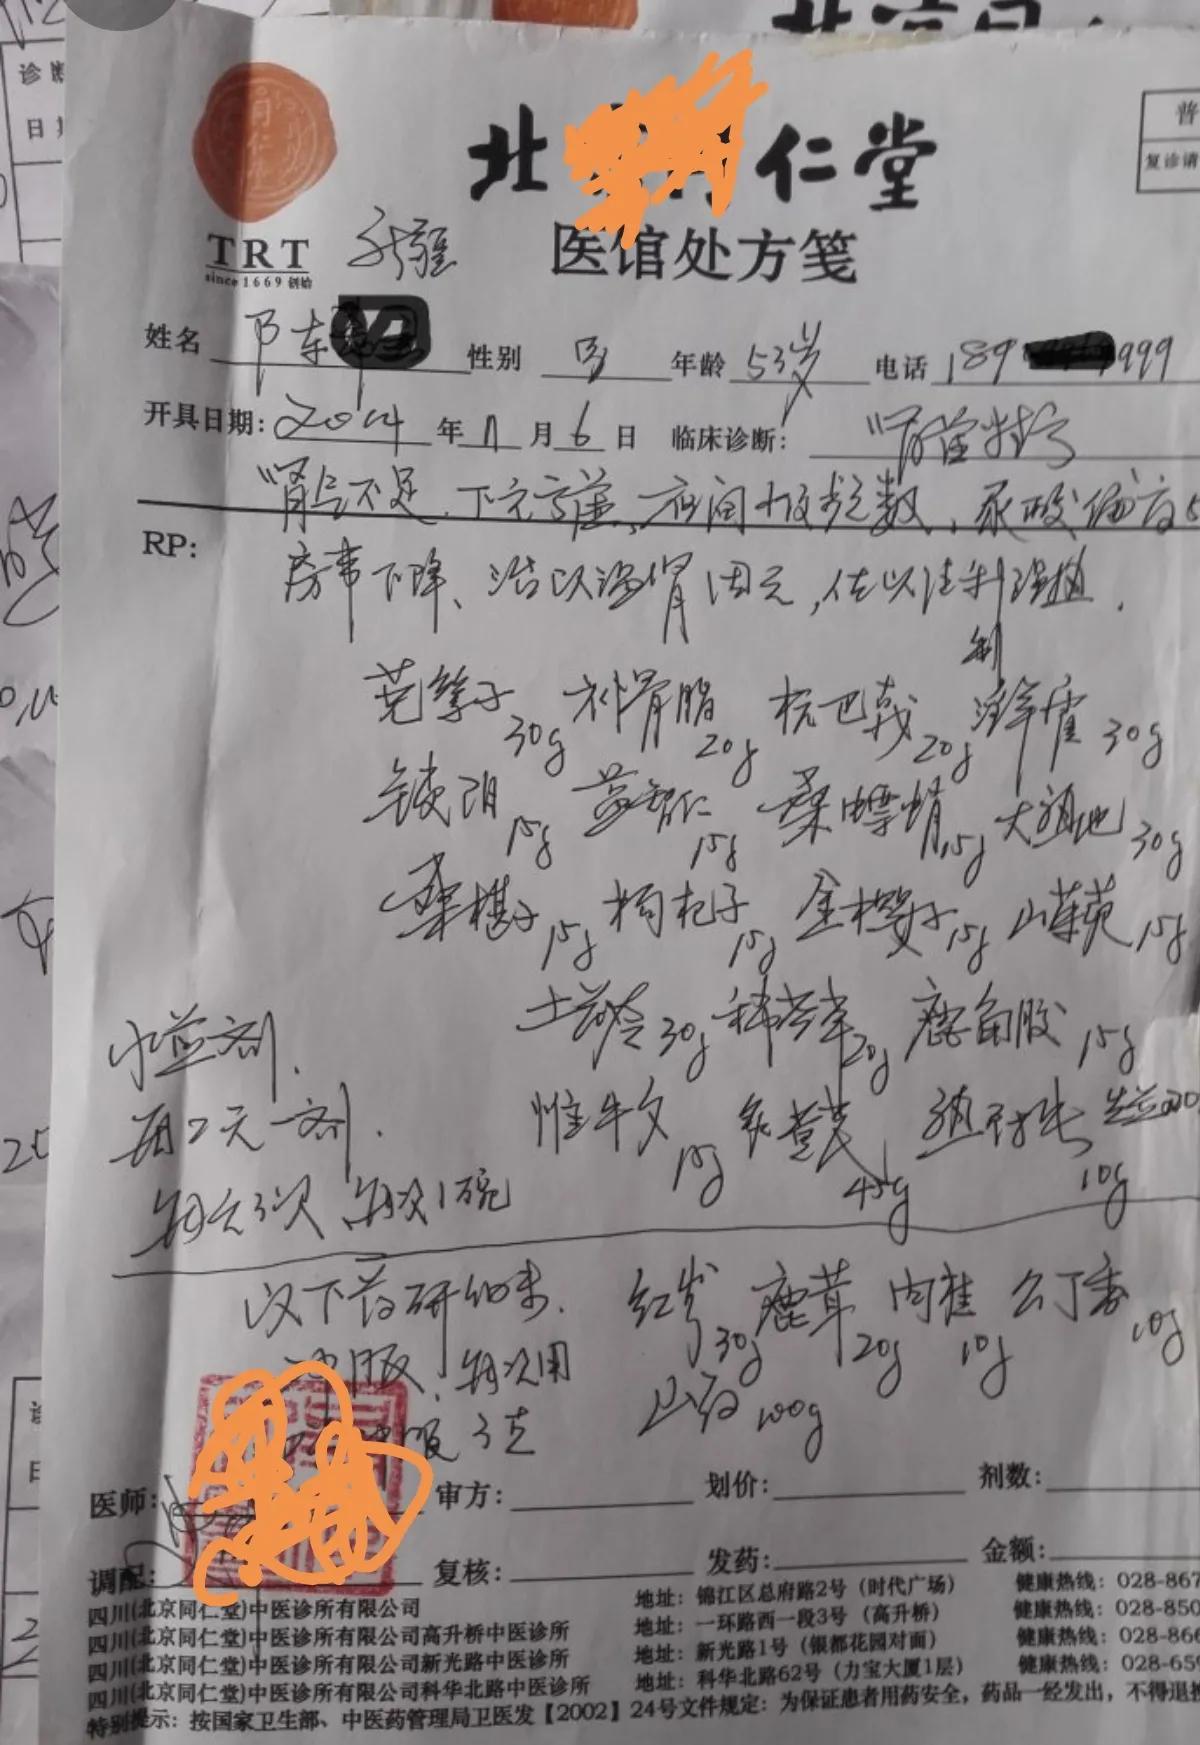 北 仁堂
医馆处方笺
TRT
since 1669 创始
新疆
普
复诊请
诊断
日期
姓名 东 性别 男 年龄 53岁 电话 189 999
开具日期: 2014 年 11 月 6 日 临床诊断:
肾气不足、下元亏虚、夜间 数，尿酸偏高
RP:
房事下降、治以温肾固元，佐以
制
菟丝子30g 补骨脂20g 杭巴戟20g 淫羊藿30g
锁阳15g 益智仁15g 桑螵蛸15g 大熟地30g
桑椹子15g 枸杞子15g 金樱子15g 山茱萸15g
土茯苓30g 豨莶草20g 鹿角胶15g
水煎剂.
淮牛夕15g 炙黄芪45g 10g
每2天一剂.
每天3次 每次1碗
以下药研细末. 红参30g 鹿茸20g 肉桂10g 公丁香10g
冲服, 每次用
山药100g
服 3克
医师: 审方: 划价: 剂数:
调配: 复核: 发药: 金额:
四川(北京同仁堂)中医诊所有限公司 地址: 锦江区总府路2号（时代广场） 健康热线: 028-867
四川(北京同仁堂)中医诊所有限公司高升桥中医诊所 地址: 一环路西一段3号（高升桥） 健康热线: 028-850
四川(北京同仁堂)中医诊所有限公司新光路中医诊所 地址: 新光路1号（银都花园对面） 健康热线: 028-866
四川(北京同仁堂)中医诊所有限公司科华北路中医诊所 地址: 科华北路62号（力宝大厦1层） 健康热线: 028-659
特别提示: 按国家卫生部、中医药管理局卫医发【2002】24号文件规定: 为保证患者用药安全，药品一经发出，不得退换